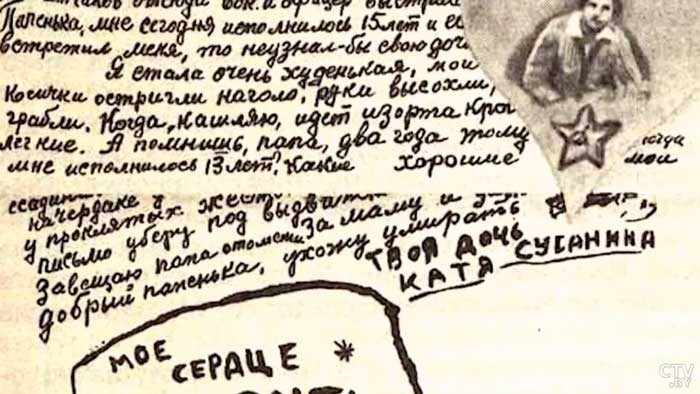 офицер
Папенька, мне сегодня исполнилось 15 лет и ес
встретил меня, то неузнал-бы свою доч
Я стала очень худенькая, мои
Косички остригли наголо, руки высохли,
грабли. Когда кашляю, идет изорта кро
легкие. А помнишь, папа, два года тому
мне исполнилось 13 лет? Какие хорошие мои
на чердаке
у проклятых жест
письмо уберу под
Завещаю папа отомсти за маму и
добрый папенька, ухожу умирать
ТВОЯ ДОЧЬ
КАТЯ СУСАНИНА
МОЕ
СЕРДЦЕ *
CTV
.BY